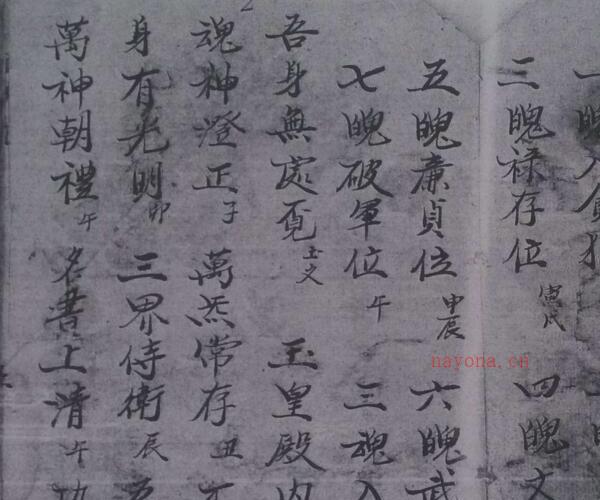 一魄入貪狼
三魄祿存位 寅戌 四魄文
五魄廉貞位 申辰 六魄武
七魄破軍位 午 三魂入
吾身無處覓 玉皇殿内
魂神澄正 子 萬炁常存 丑
身有光明 卯 三界侍衛 辰 五
萬神朝禮 午 名書上清 午 功
nayona.cn